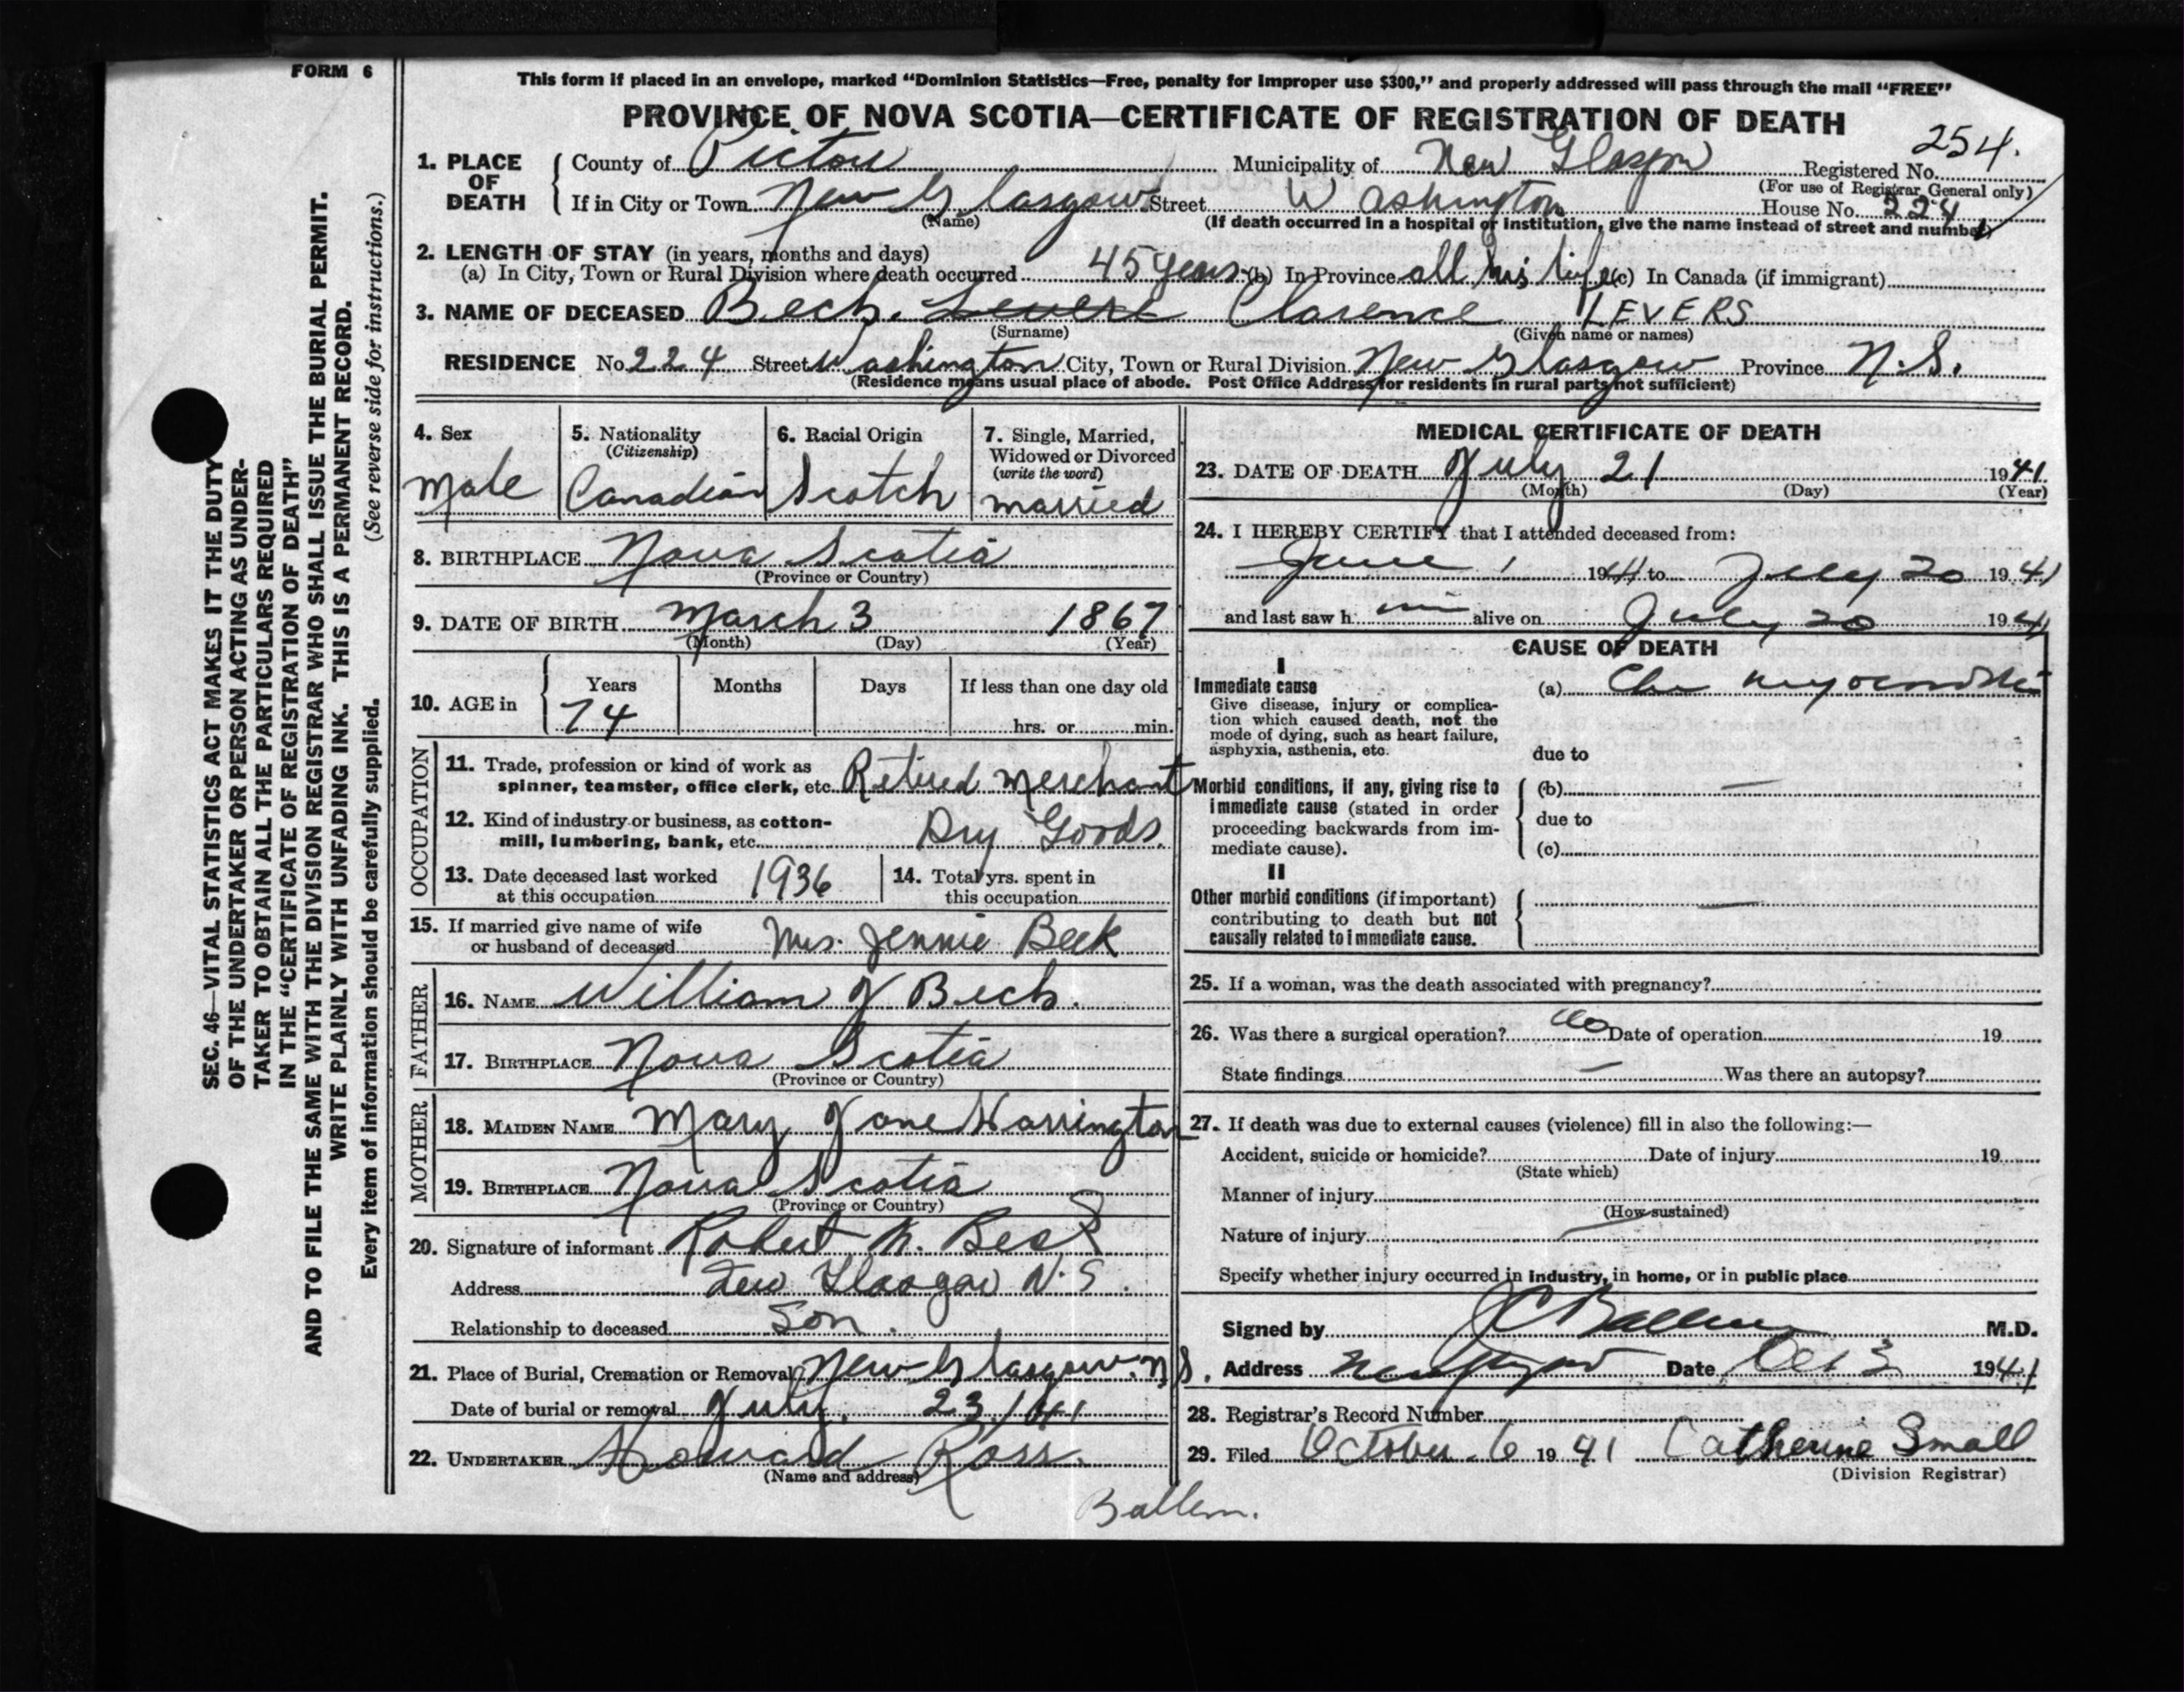 FORM 6
This form if placed in an envelope, marked "Dominion Statistics—Free, penalty for improper use $300," and properly addressed will pass through the mail "FREE"
PROVINCE OF NOVA SCOTIA—CERTIFICATE OF REGISTRATION OF DEATH
254.
1. PLACE OF DEATH County of Pictou Municipality of New Glasgow Registered No.
(For use of Registrar General only)
If in City or Town New Glasgow Street Washington House No. 224
(Name) (If death occurred in a hospital or institution, give the name instead of street and number)
2. LENGTH OF STAY (in years, months and days)
(a) In City, Town or Rural Division where death occurred 45 years (b) In Province all his life (c) In Canada (if immigrant)
3. NAME OF DECEASED Beck. Levers Clarence LEVERS
(Surname) (Given name or names)
RESIDENCE No. 224 Street Washington City, Town or Rural Division New Glasgow Province N.S.
(Residence means usual place of abode. Post Office Address for residents in rural parts not sufficient)
4. Sex Male
5. Nationality (Citizenship) Canadian
6. Racial Origin Scotch
7. Single, Married, Widowed or Divorced (write the word) married
8. BIRTHPLACE Nova Scotia
(Province or Country)
9. DATE OF BIRTH March 3 1867
(Month) (Day) (Year)
10. AGE in Years Months Days If less than one day old
74 hrs. or min.
OCCUPATION
11. Trade, profession or kind of work as
spinner, teamster, office clerk, etc. Retired Merchant
12. Kind of industry or business, as cotton-
mill, lumbering, bank, etc. Dry Goods.
13. Date deceased last worked
at this occupation 1936
14. Total yrs. spent in
this occupation
15. If married give name of wife
or husband of deceased Mrs. Jennie Beck
FATHER
16. NAME William J Beck.
17. BIRTHPLACE Nova Scotia
(Province or Country)
MOTHER
18. MAIDEN NAME Mary Jane Harrington
19. BIRTHPLACE Nova Scotia
(Province or Country)
20. Signature of informant Robert N. Beck
Address New Glasgow N.S.
Relationship to deceased Son.
21. Place of Burial, Cremation or Removal New Glasgow. N.S.
Date of burial or removal July. 23/41
22. UNDERTAKER Howard Ross.
(Name and address)
MEDICAL CERTIFICATE OF DEATH
23. DATE OF DEATH July 21 1941
(Month) (Day) (Year)
24. I HEREBY CERTIFY that I attended deceased from:
June 1 1941 to July 20 1941
and last saw him alive on July 20 1941
CAUSE OF DEATH
I
Immediate cause (a) Chr myocarditis
Give disease, injury or complica-
tion which caused death, not the
mode of dying, such as heart failure,
asphyxia, asthenia, etc.
due to
Morbid conditions, if any, giving rise to (b) —
immediate cause (stated in order
proceeding backwards from im- due to
mediate cause). (c)
II
Other morbid conditions (if important)
contributing to death but not —
causally related to immediate cause.
25. If a woman, was the death associated with pregnancy?
26. Was there a surgical operation? No Date of operation 19
State findings — Was there an autopsy?
27. If death was due to external causes (violence) fill in also the following:—
Accident, suicide or homicide? Date of injury 19
(State which)
Manner of injury
(How sustained)
Nature of injury —
Specify whether injury occurred in industry, in home, or in public place
Signed by J C Ballem M.D.
Address New Glasgow Date Oct 3 1941
28. Registrar's Record Number
29. Filed October 6 1941 Catherine Small
(Division Registrar)
Ballem.
SEC. 46—VITAL STATISTICS ACT MAKES IT THE DUTY
OF THE UNDERTAKER OR PERSON ACTING AS UNDER-
TAKER TO OBTAIN ALL THE PARTICULARS REQUIRED
IN THE "CERTIFICATE OF REGISTRATION OF DEATH"
AND TO FILE THE SAME WITH THE DIVISION REGISTRAR WHO SHALL ISSUE THE BURIAL PERMIT.
WRITE PLAINLY WITH UNFADING INK. THIS IS A PERMANENT RECORD.
Every item of information should be carefully supplied. (See reverse side for instructions.)